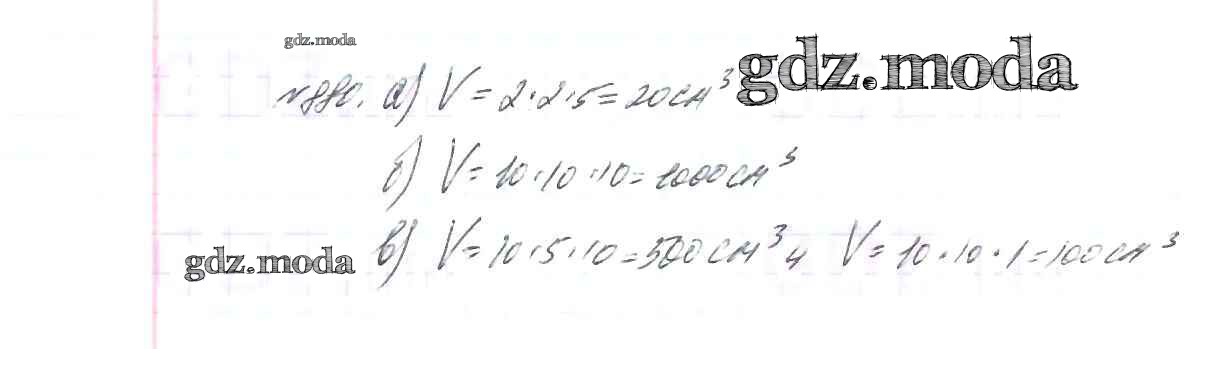 gdz.moda
№880. а) V = 2·2·5 = 20см³ gdz.moda
б) V = 10·10·10 = 1000см³
gdz.moda в) V = 10·5·10 = 500см³ и V = 10·10·1 = 100см³